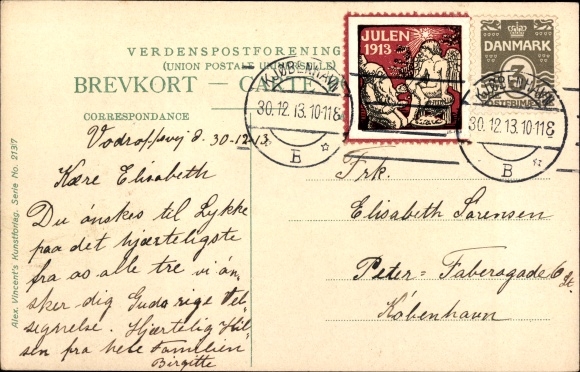 VERDENSPOSTFORENING
(UNION POSTALE UNIVERSELLE)
BREVKORT — CARTE
CORRESPONDANCE
Vodroffsvej 8. 30-12-13.
Kære Elisabeth
Du ønskes til Lykke
paa det hjærteligste
fra os alle tre vi øn-
sker dig Guds rige Vel-
signelse. Hjærtelig Hil-
sen fra hele Familien
Birgitte
Alex. Vincent's Kunstforlag. Serie No. 2137
JULEN
1913
DANMARK
2
KJØBENHAVN
30.12.13.10-11 F
B
KJØBENHAVN
30.12.13.10-11 F
B
Frk.
Elisabeth Sørensen
Peter-Faborsgade 6
København